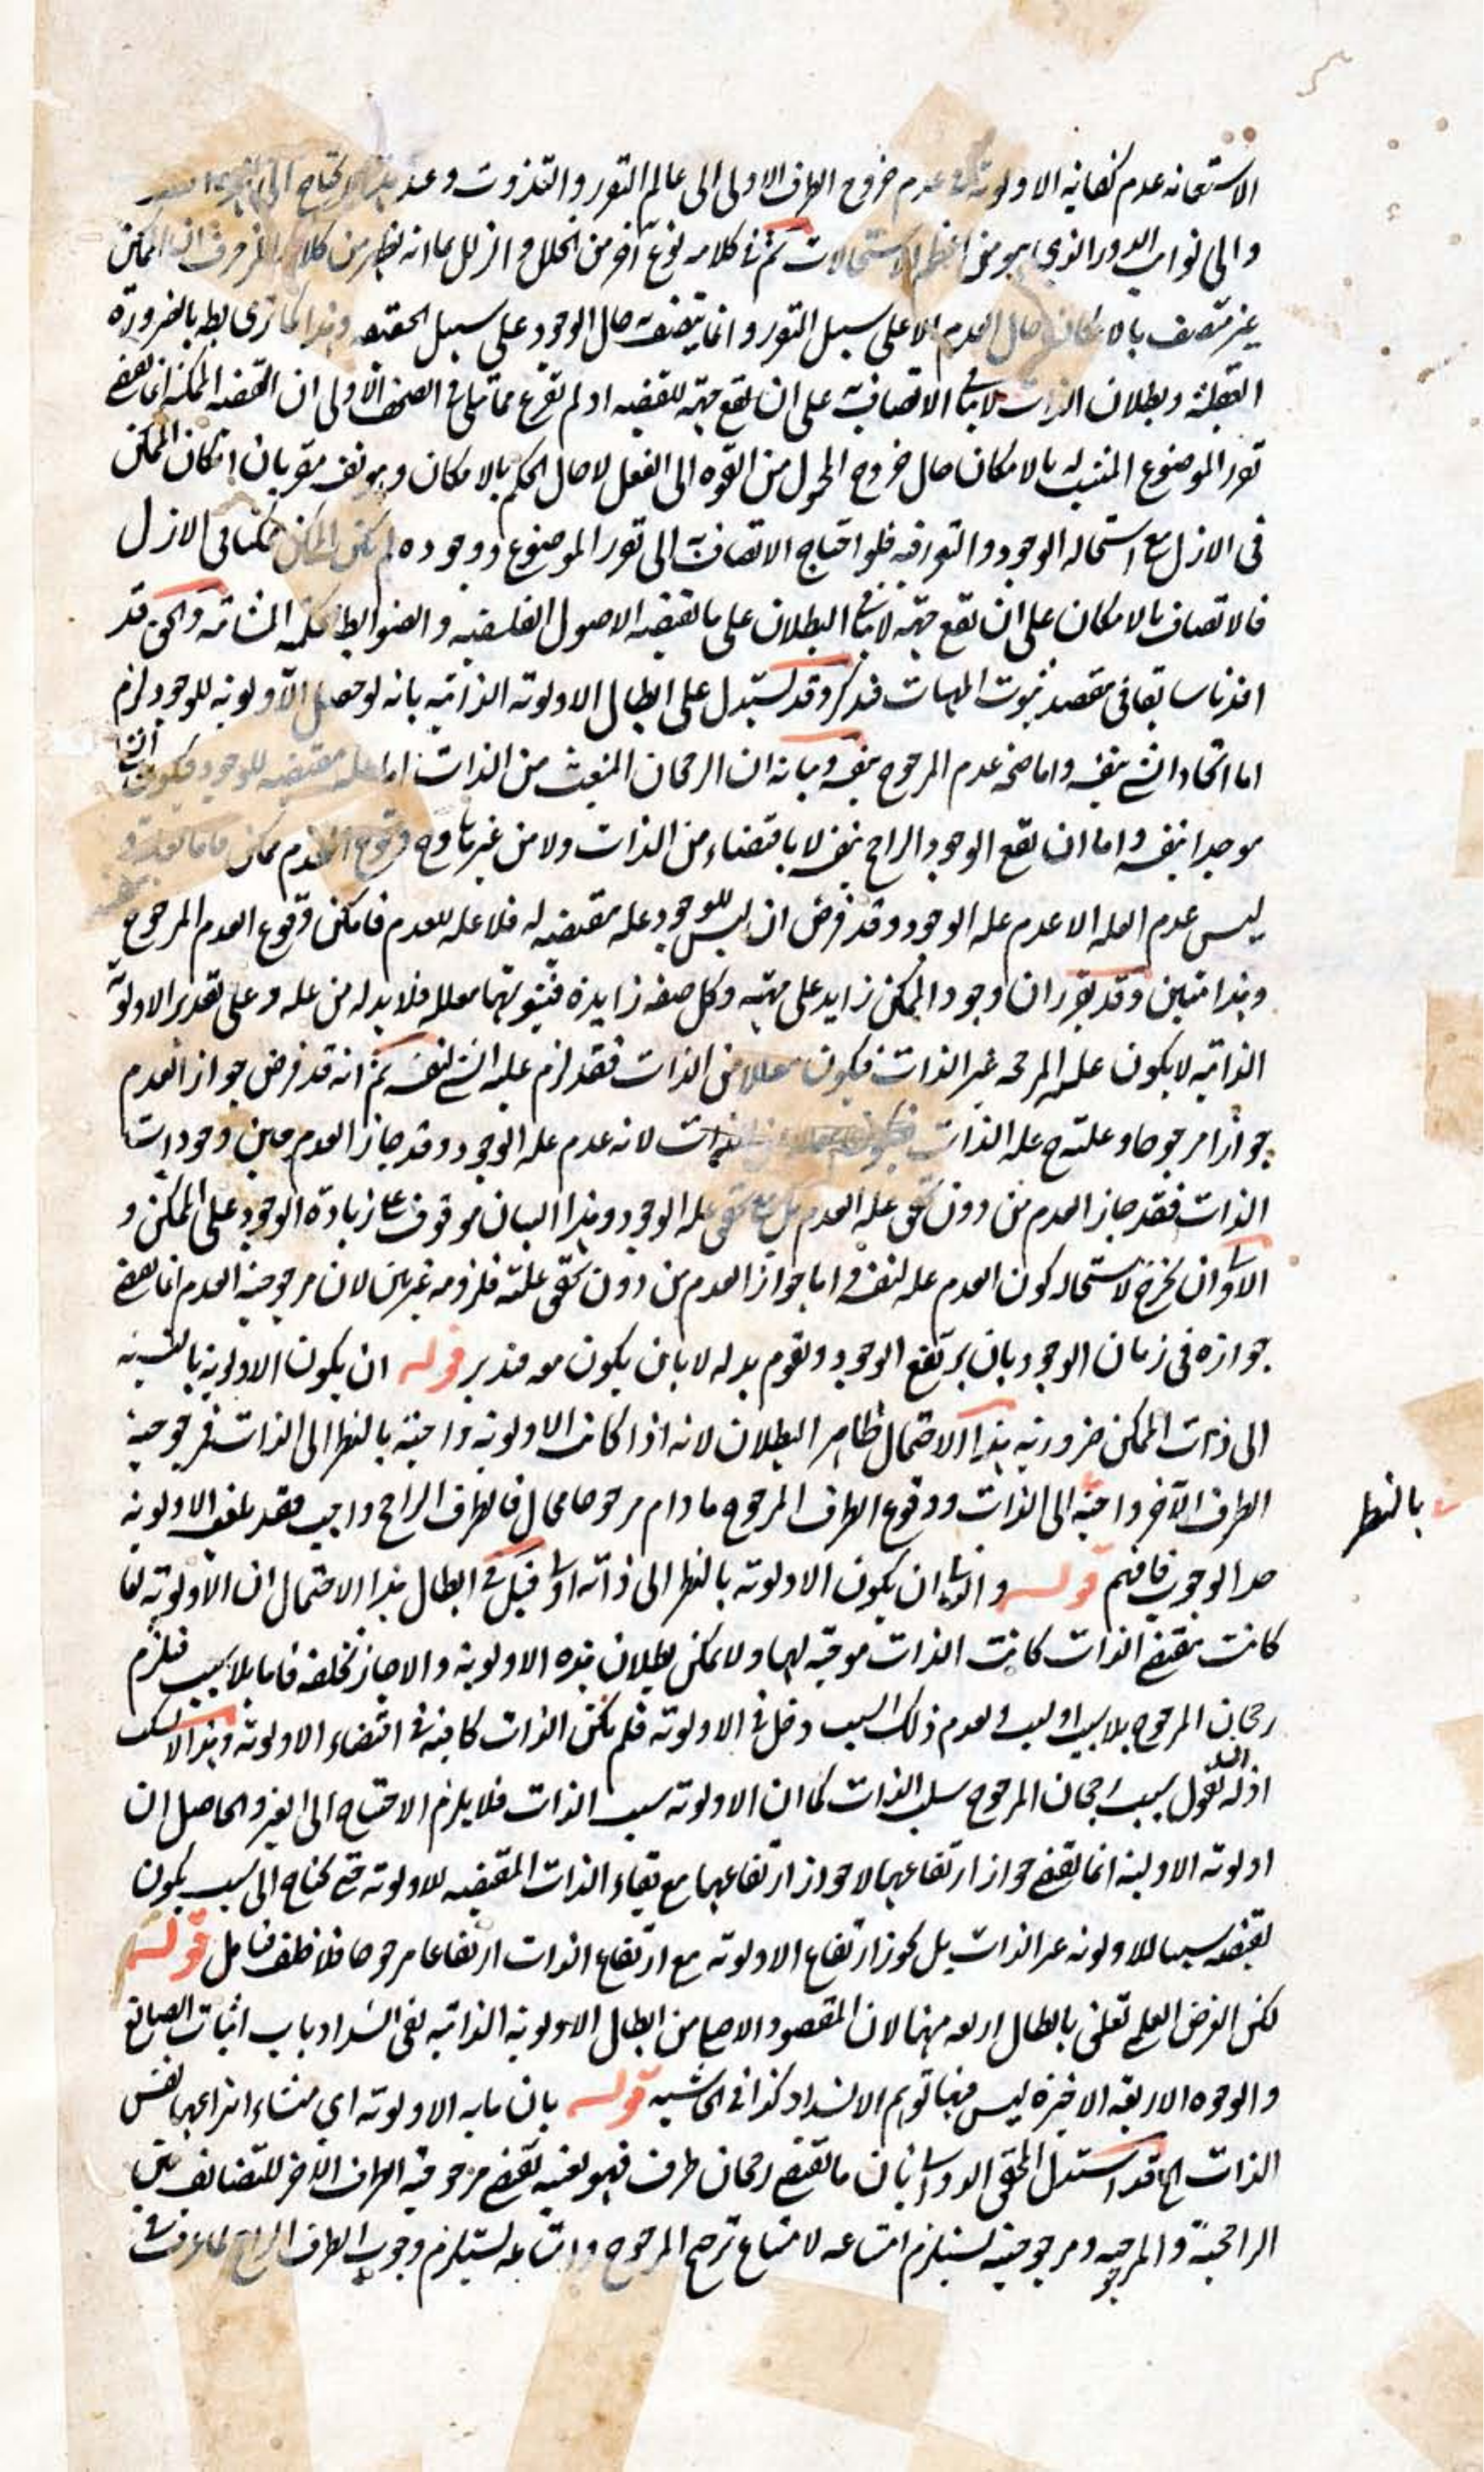 الاستعانه عدم كفايه الاولوية و عدم خروج الطرف الاولى الى عالم التقرر والتذوت وعند
والى نواب الدور الذي هو من اعظم الاستحالات ثم فى كلامه نوع آخر من الخلل والزلل بما انه يظهر من ان الممكن
غير متصف بالامكان حال العدم الا على سبيل التقرر وانما يتصف به حال الوجود على سبيل الحقيقه وهذا كما ترى بط بالضرورة
العقلية وبطلان الذات لا ينافى الاتصاف به على ان تقع جهة للقضيه او لم تقرع مما تلى فى الصحف الاولى ان القضيه الممكنه انما تقتضى
تقرر الموضوع المنتسب له بالامكان حال خروج المحمول من القوه الى الفعل لا حال الحكم بالامكان وهو نفسه مقر بان امكان الممكن
فى الازل مع استحاله الوجود والتقرر فيه فلو احتاج الاتصاف به الى تقرر الموضوع ووجوده لم يكن الممكن ممكنا فى الازل
فالاتصاف بالامكان على ان تقع جهة لا ينافى البطلان على ما تقتضيه الاصول الفلسفيه والضوابط الحكمية المشائية والحق قد
افدناه سابقا فى مقصد ثبوت المهيات فتذكر وقد يستدل على ابطال الاولوية الذاتيه بانه لو حصل الاولويه للوجود لزم
اما اتحاد الشئ بنفسه واما صحة عدم المرجوح بنفسه وبيانه ان الرجحان المنبعث من الذات اما عله مقتضيه للوجود فيكون الشئ
موجدا بنفسه واما ان تقع الوجود الراجح بنفسه لا باقتضاء من الذات ولا من غيرها وح وقوع العدم ممكن
ليس عدم العله الا عدم عله الوجود وقد فرض ان ليس للوجود عله مقتضيه له فلا عله للعدم فامكن وقوع العدم المرجوح
وهذا متبين وقد تقرر ان وجود الممكن زايد على مهيته وكل صفه زايدة فثبوتها معلل فلا بد له من عله وعلى تقدير الاولوية
الذاتيه لا يكون علة المرجحه غير الذات فيكون معللا من الذات فقد لزم علية الشئ لنفسه ثم انه قد فرض جواز العدم
جوازا مرجوحا وعلته ح عله الذات لانه عدم عله الوجود وقد جاز العدم حين وجود ذات
الذات فقد جاز العدم من دون تحقق علة العدم بل مع تحقق عله الوجود وهذا البيان موقوف على زيادة الوجود على الممكن و
الاولى ان يخرج لاستحاله كون العدم عله لنفسه واما جواز العدم من دون تحقق علته فلزومه غير بين لان مرجوحية العدم انما يقتضى
جوازه فى زمان الوجود بان يرتفع الوجود ويقوم بدله لا بان يكون معه فتدبر قوله ان يكون الاولوية بالنسبه
الى ذات الممكن ضرورية هذا الاحتمال ظاهر البطلان لانه اذا كانت الاولويه واجبة بالنظر الى الذات فمرجوحية
الطرف الآخر واجبة الى الذات ووقوع الطرف المرجوح ما دام مرجوحا محال فالطرف الراجح واجب فقد بلغ الاولويه
بالنظر
حد الوجوب فافهم قوله والثانى ان يكون الاولوية بالنظر الى ذاته اولى قيل فى ابطال هذا الاحتمال ان الاولوية لما
كانت بمقتضى الذات كانت الذات موجبة لها ولا يمكن بطلان هذه الاولوية والا جاز تخلفه فاما بلا سبب فيلزم
رجحان المرجوح بلا سبب او بسبب ولعدم ذلك السبب دخل فى الاولوية فلم يكن الذات كافية فى اقتضاء الاولوية وهذا لا
اذ له ان يقول سبب رجحان المرجوح سلب الذات كما ان الاولوية سبب الذات فلا يلزم الاحتياج الى الغير والحاصل ان
اولوية الاولية انما يقتضى جواز ارتفاعهما لا جواز ارتفاعهما مع بقاء الذات المقتضيه للاولوية حتى يحتاج الى سبب يكون
نقيضه سببا للاولويه غير الذات بل يجوز ارتفاع الاولوية مع ارتفاع الذات ارتفاعا مرجوحا فلا خلف فتامل قوله
لكن الغرض العلمى تعلق بابطال اربعه منها لان المقصود الاصلى من ابطال الاولويه الذاتيه نفى انسداد باب اثبات الصانع
والوجوه الاربعه الاخيره ليس فيها توهم الانسداد كذا فى الحاشيه قوله بان ما به الاولوية اى منشاء انتزاعها نفس
الذات الخ قد استدل المحقق الدوانى بان ما يقتضى رجحان طرف فهو بعينه يقتضى مرجوحية الطرف الاخر للتضايف بين
الراجحية والمرجوحيه ومرجوحيته يستلزم امتناعه لامتناع ترجح المرجوح وامتناعه يستلزم وجوب الطرف الراجح لما عرفت فى